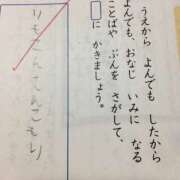 うえから よんでも したから
よんでも、おなじ いみに なる
ことばや ぶんを さがして、
□に かきましょう。
りもこんてんこもり